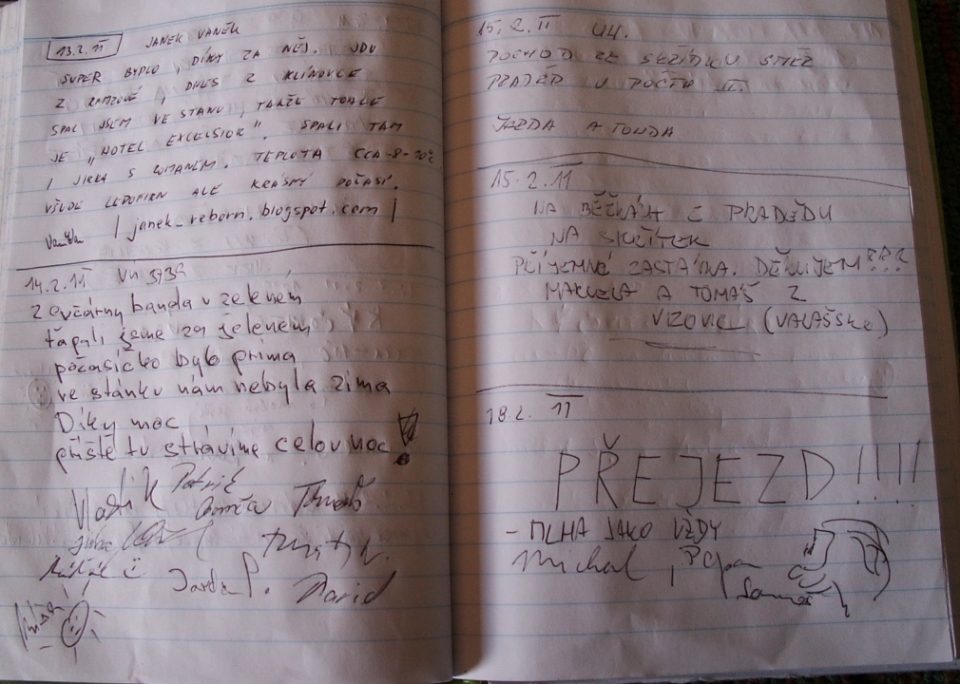 13.2.11 JANEK VANĚK
SUPER BYDLO, DÍKY ZA NĚJ. JDU
Z RAMZOVÉ, DNES Z KLÍNOVCE
SPAL JSEM VE STANU, TAKŽE TOHLE
JE „HOTEL EXCELSIOR". SPALI TAM
I JIRKA S ROMANEM. TEPLOTA CCA -8-10°C
VŠUDE LEDOPIRN ALE KRÁSNÝ POČASÍ.
Vaněk | janek_reborn.blogspot.com |
14.2.11
Z ovčárny banda v zeleném
ťapali jsme za jeleném,
počasíčko bylo príma
ve stánku nám nebyla zima
Díky moc
příště tu strávíme celou noc!
Vladik Patrik
Tomáš
Jarda P. David
15.2.11 UH.
POCHOD ZE SKŘÍTKU SMĚR
PRADĚD V POČTU II.
JARDA A TONDA
15.2.11
NA BĚŽKÁCH Z PRADĚDU
NA SKŘÍTEK
PŘÍJEMNÁ ZASTÁVKA. DĚKUJEM
A TOMÁŠ Z
VIZOVIC (VALAŠSKO)
18.2.11
PŘEJEZD!!!!
- MLHA JAKO VŽDY
Michal, Pepa